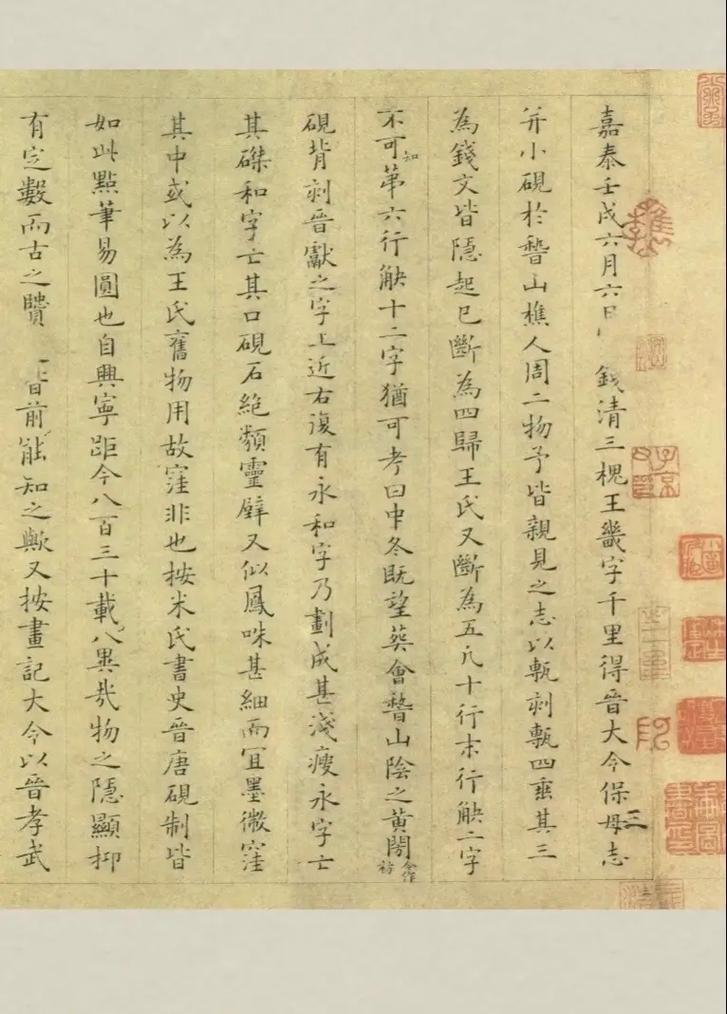 嘉泰壬戌六月六日錢清三槐王畿字千里得晉大令保母志
并小硯於嵇山樵人周二物予皆親見之志以甎刻甎四垂其三
為錢文皆隱起已斷為四歸王氏又斷為五凡十行末行缺二字
不可知第六行缺十二字猶可考曰中冬既望葬會嵇山陰之黃閍
今作祊
硯背刻晉獻之字上近右復有永和字乃劃成甚淺瘦永字亡
其磔和字亡其口硯石絕類靈壁又似鳳咮甚細而宜墨微窪
其中或以為王氏舊物用故窪非也按米氏書史晉唐硯制皆
如此點筆易圓也自興寧距今八百三十載異哉物之隱顯抑
有定數而古之賢前能知之歟又按畫記大令以晉孝武
三